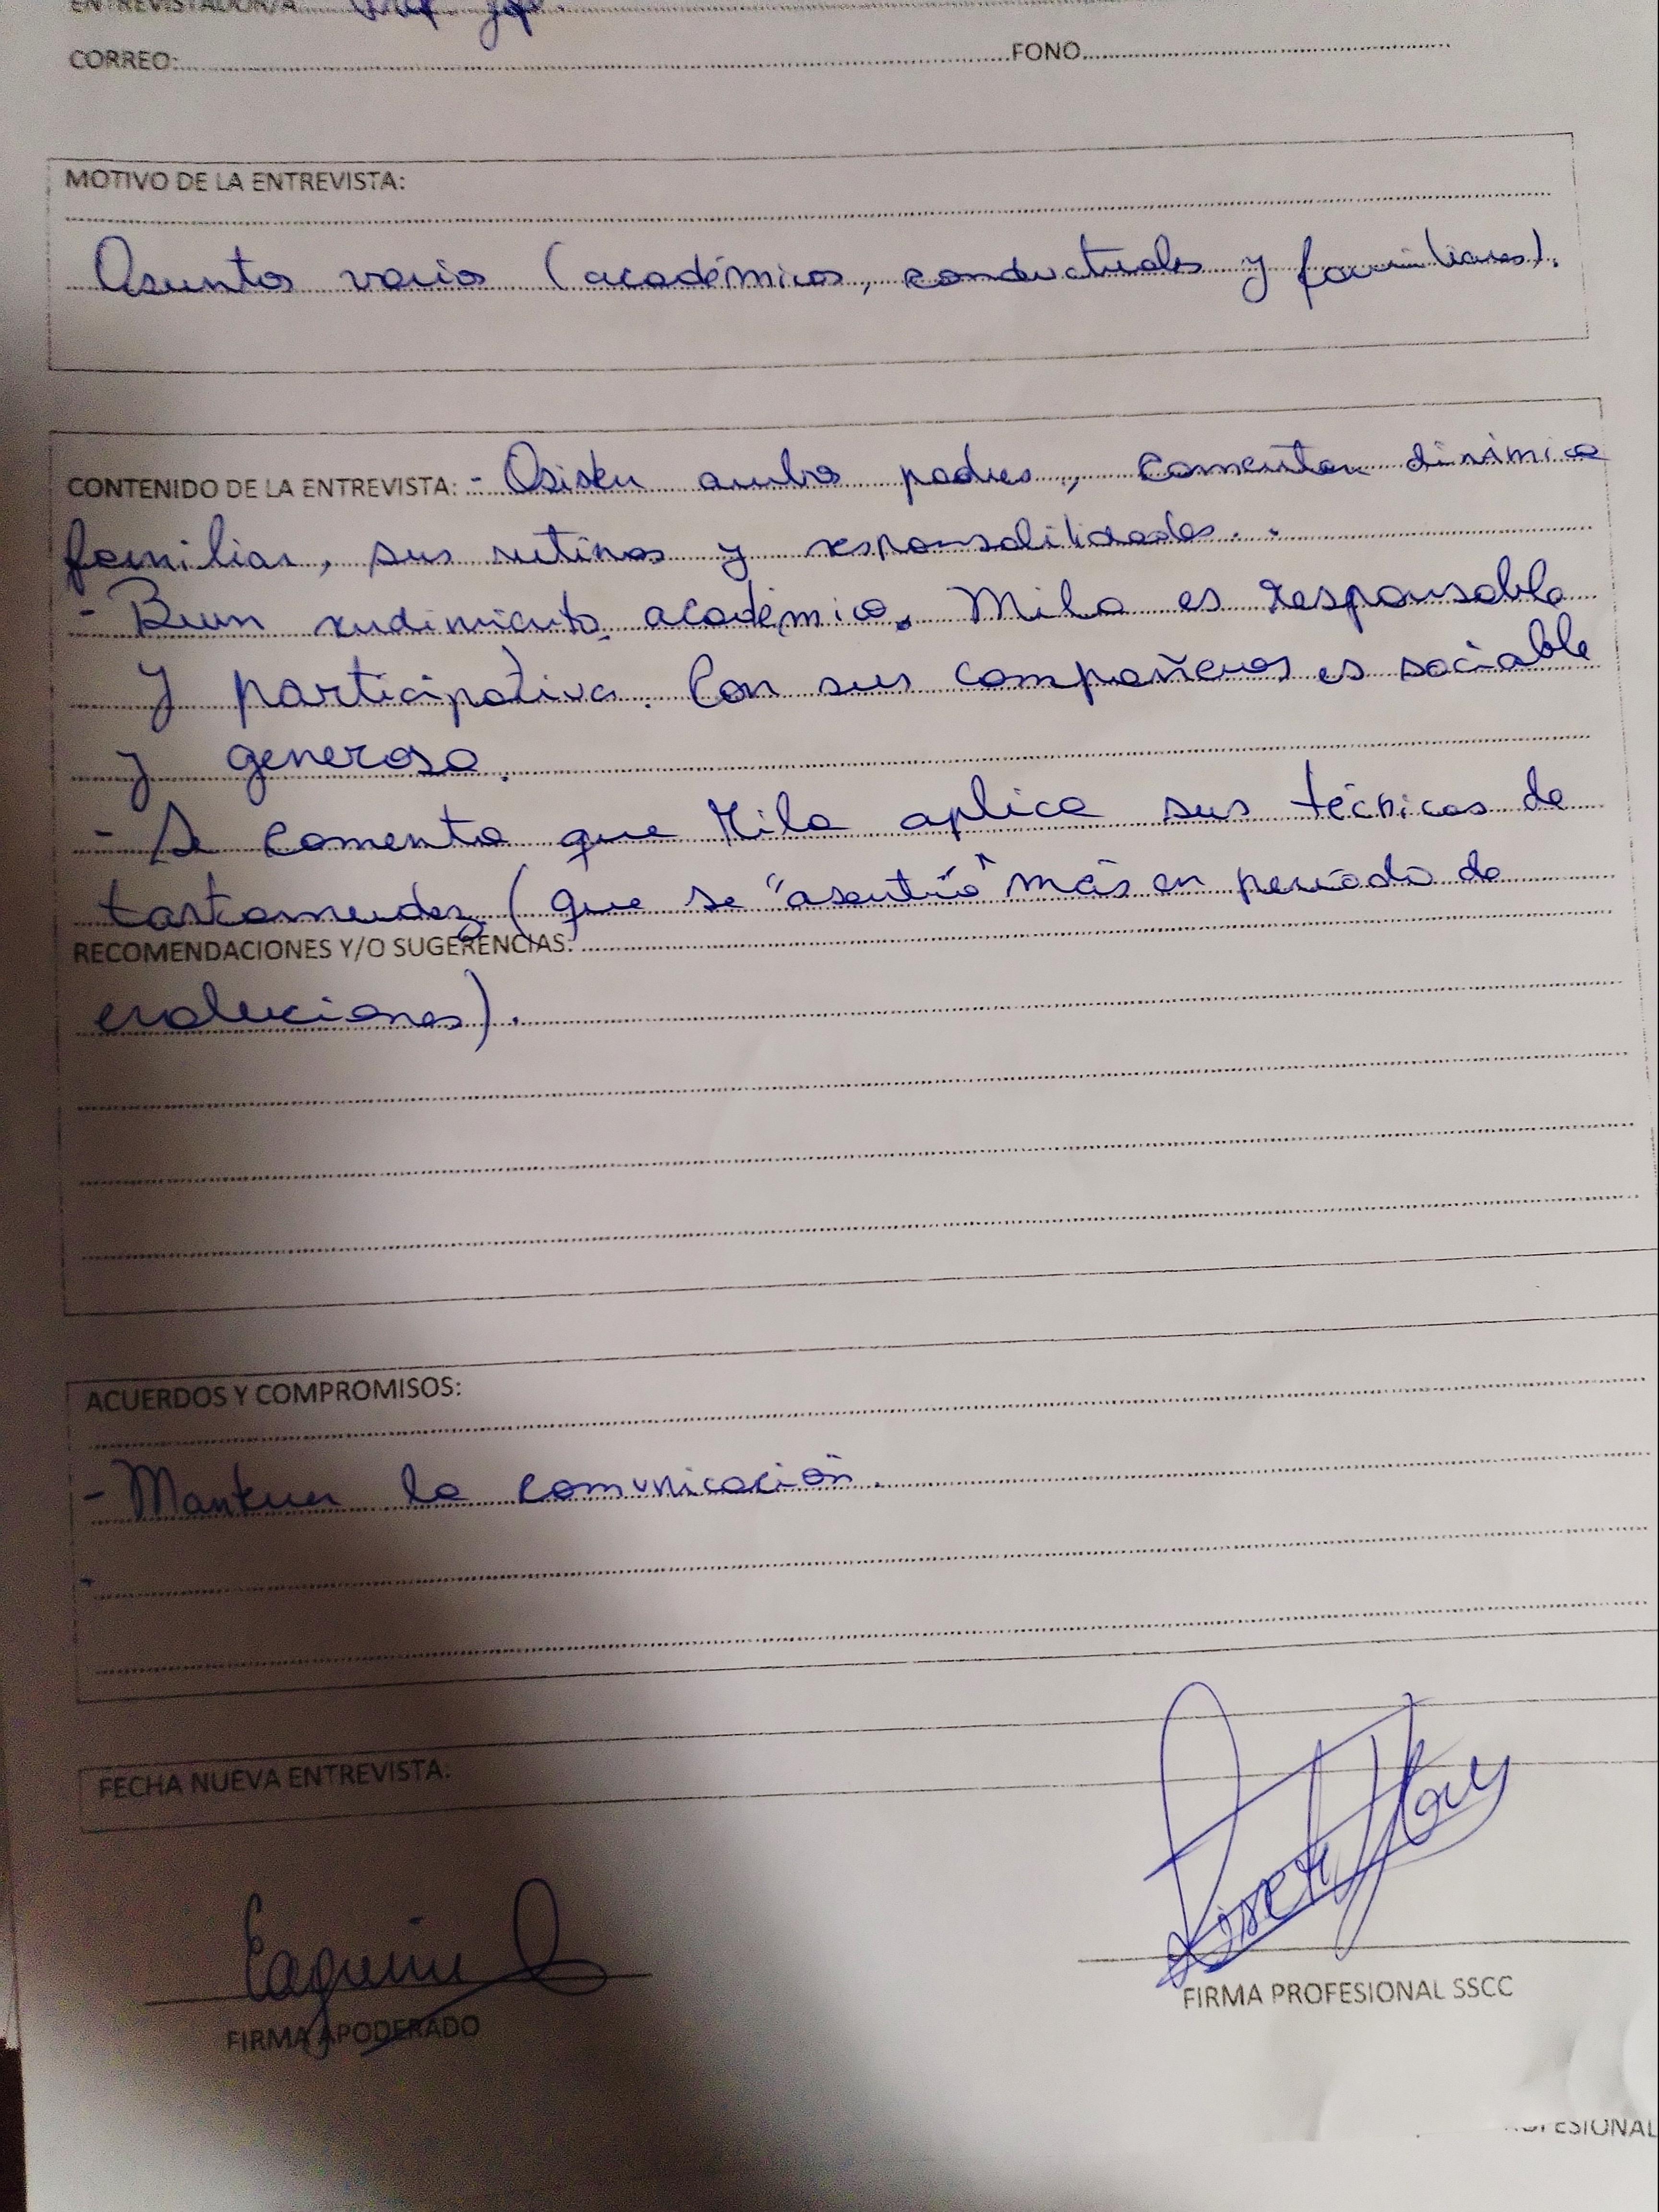 ENTREVISTADOR/A: Prof. Jefe.
CORREO: FONO
MOTIVO DE LA ENTREVISTA:
Asuntos varios (académicos, conductuales y familiares).
CONTENIDO DE LA ENTREVISTA: - Asisten ambos padres, comentan dinámica
familiar, sus rutinas y responsabilidades.
- Buen rendimiento académico. Mila es responsable
y participativa. Con sus compañeros es sociable
y generosa.
- Se comenta que Mila aplica sus técnicas de
tartamudez (que se "asentúo" más en periodo de
RECOMENDACIONES Y/O SUGERENCIAS:
evaluciones).
ACUERDOS Y COMPROMISOS:
- Mantener la comunicación.
-
FECHA NUEVA ENTREVISTA:
FIRMA APODERADO
FIRMA PROFESIONAL SSCC